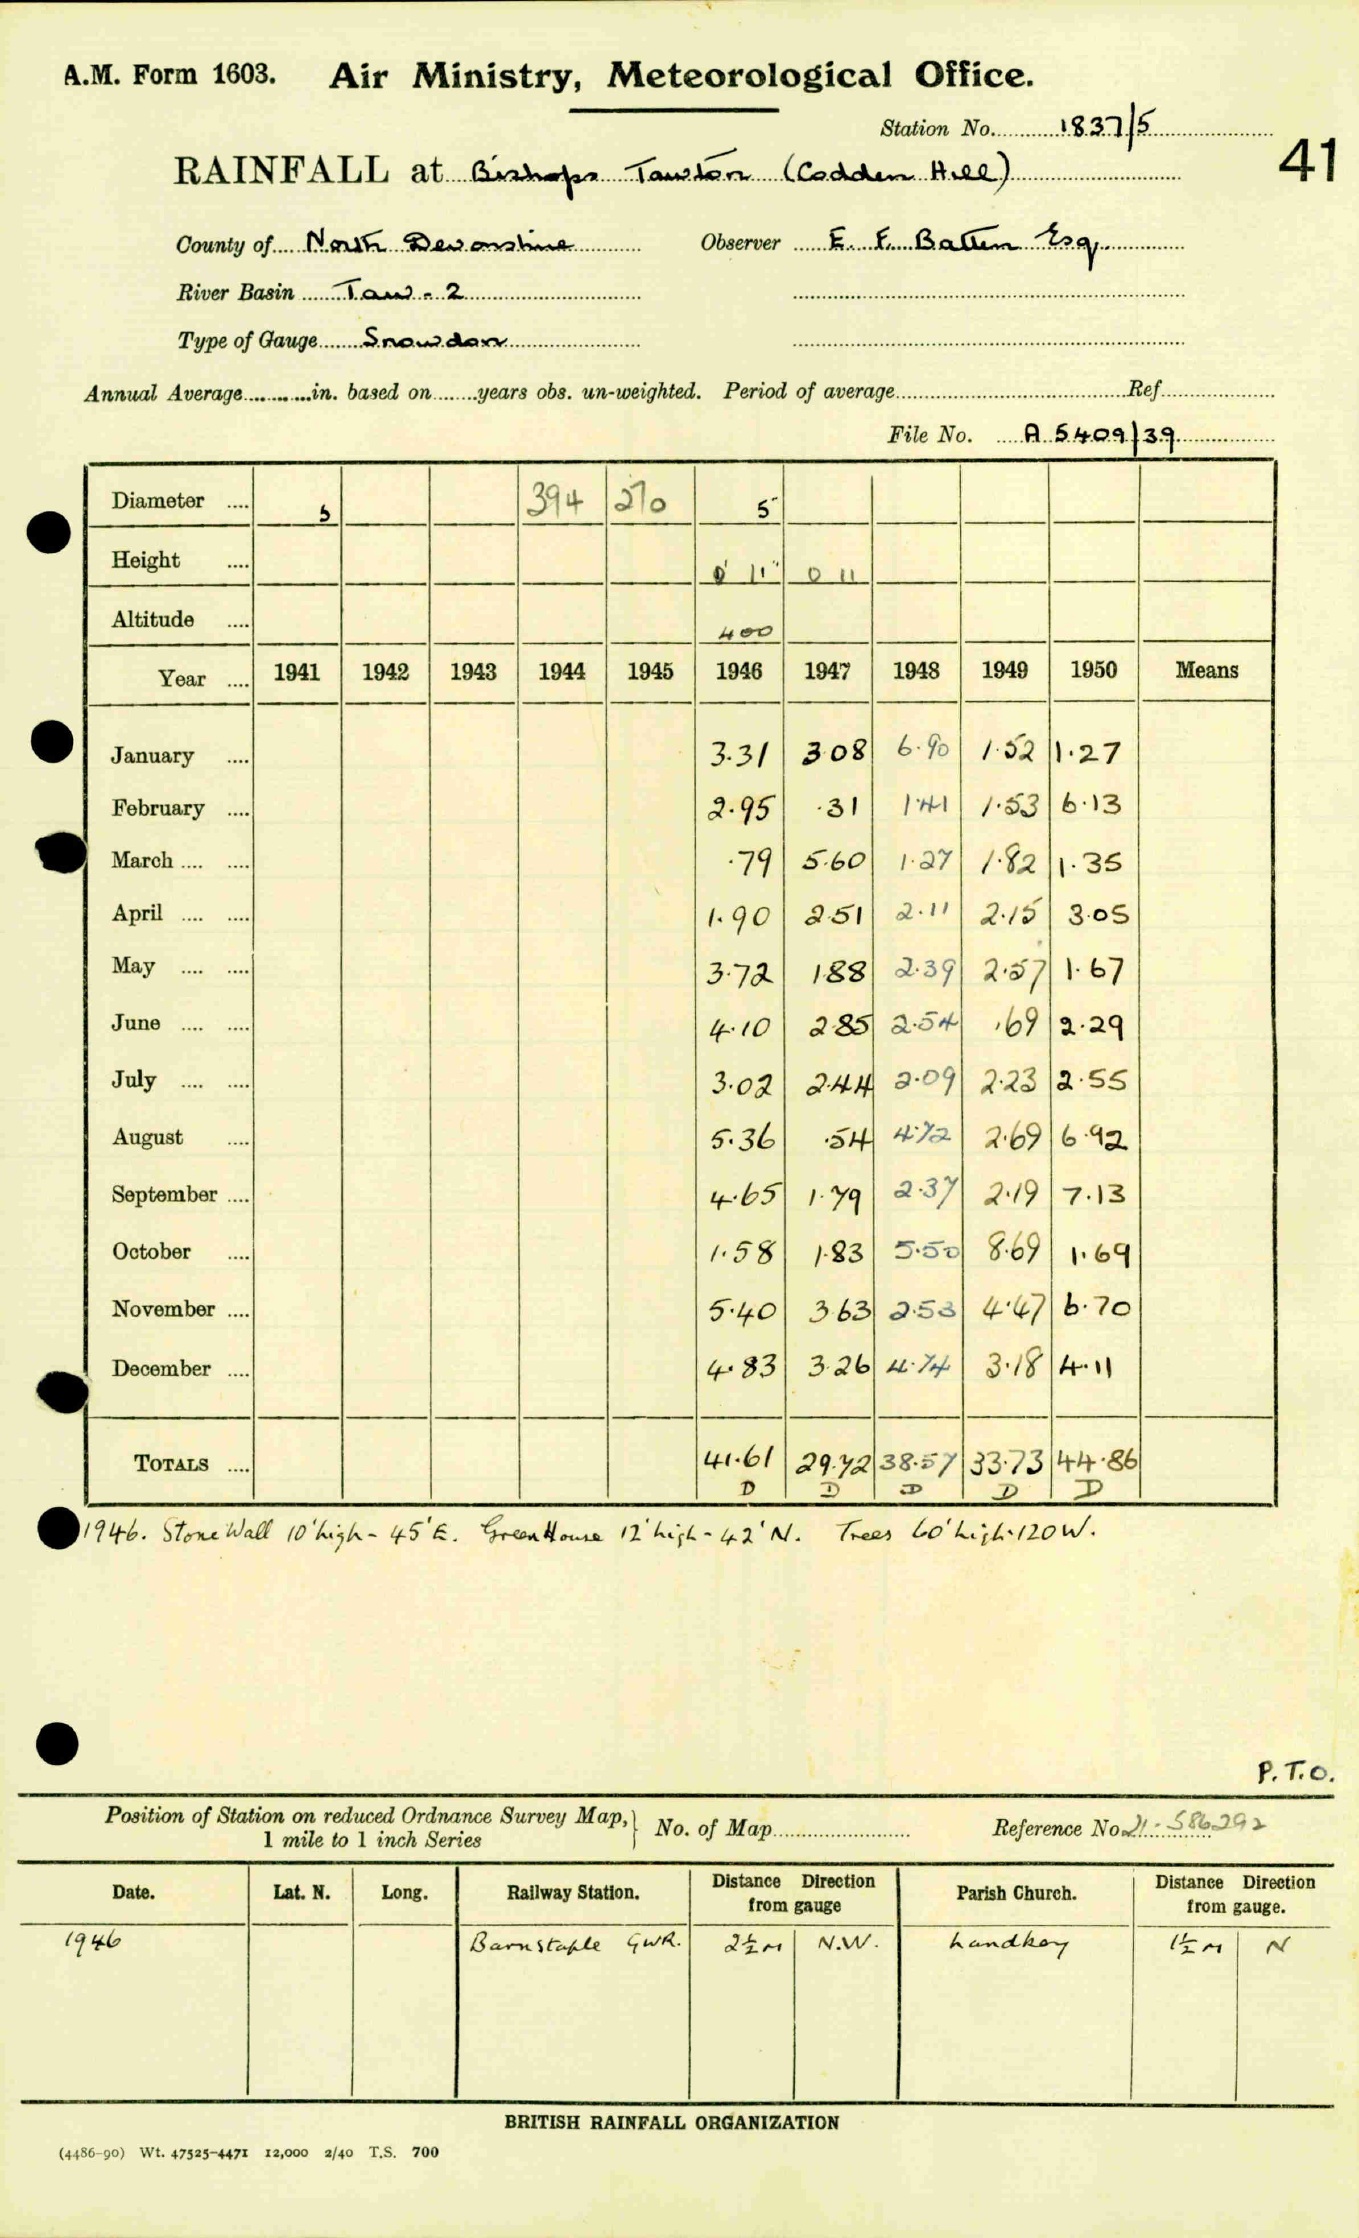 A.M. Form 1603. Air Ministry, Meteorological Office.
Station No. 1837/5
41
RAINFALL at Bishops Tawton (Codden Hill)
County of North Devonshire Observer E. F. Batten Esq.
River Basin Taw - 2
Type of Gauge Snowdon
Annual Average in. based on years obs. un-weighted. Period of average Ref
File No. A 5409/39
Diameter .... 5 394 270 5
Height .... 0' 11" 0 11
Altitude .... 400
Year .... 1941 1942 1943 1944 1945 1946 1947 1948 1949 1950 Means
January .... 3.31 3.08 6.90 1.52 1.27
February .... 2.95 .31 1.41 1.53 6.13
March .... .... .79 5.60 1.27 1.82 1.35
April .... .... 1.90 2.51 2.11 2.15 3.05
May .... .... 3.72 1.88 2.39 2.57 1.67
June .... .... 4.10 2.85 2.54 .69 2.29
July .... .... 3.02 2.44 2.09 2.23 2.55
August .... 5.36 .54 4.72 2.69 6.92
September .... 4.65 1.79 2.37 2.19 7.13
October .... 1.58 1.83 5.50 8.69 1.69
November .... 5.40 3.63 2.53 4.47 6.70
December .... 4.83 3.26 4.74 3.18 4.11
TOTALS .... 41.61 29.72 38.57 33.73 44.86
D D D D D
1946. Stone Wall 10' high - 45' E. Green House 12' high - 42' N. Trees 60' high. 120 W.
P.T.O.
Position of Station on reduced Ordnance Survey Map, 1 mile to 1 inch Series } No. of Map Reference No 21 - 586292
Date. Lat. N. Long. Railway Station. Distance Direction from gauge Parish Church. Distance Direction from gauge.
1946 Barnstaple GWR. 2½ M N.W. Landkey 1½ M N
BRITISH RAINFALL ORGANIZATION
(4486-90) Wt. 47525-4471 12,000 2/40 T.S. 700